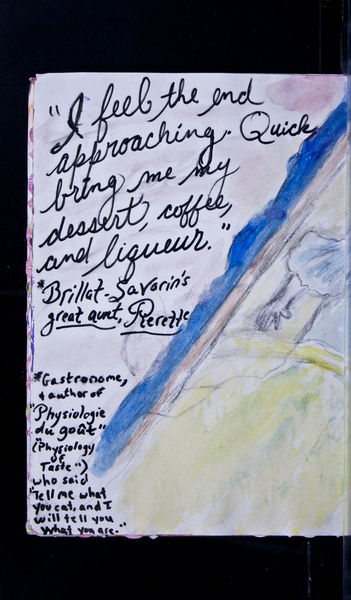 "I feel the end
approaching. Quick,
bring me my
dessert, coffee,
and liqueur."
*Brillat-Savarin's
great aunt, Pierette
*Gastronome,
& author of
"Physiologie
du goût"
("Physiology
of
Taste")
who said
"Tell me what
you eat, and I
will tell you
what you are."